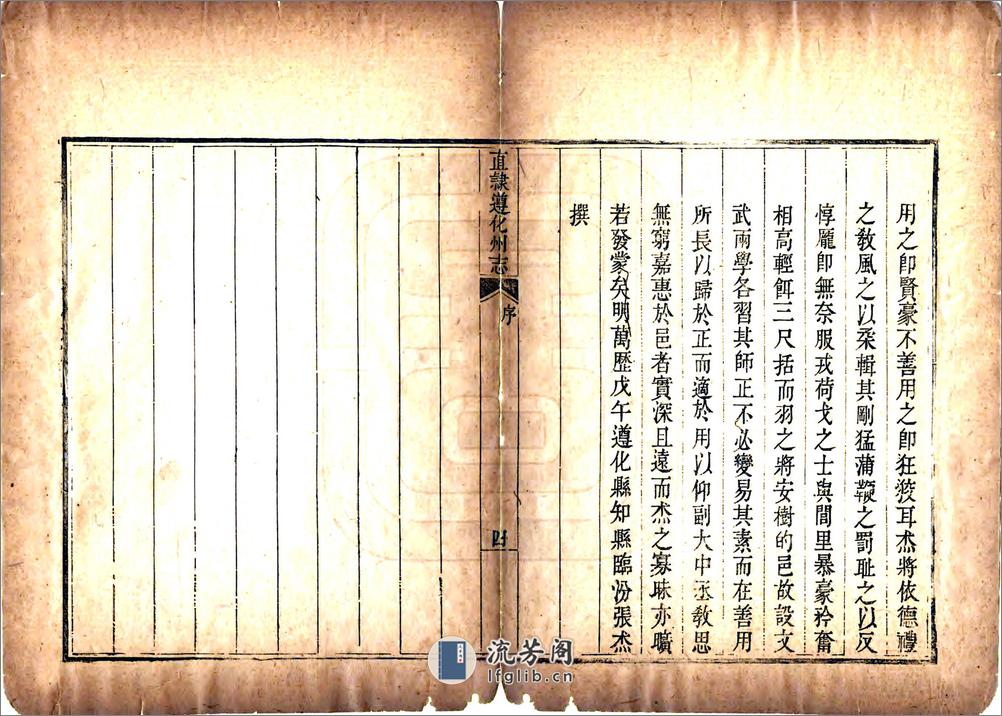 用之卽賢豪不善用之卽狂狡耳杰將依德禮
之敎風之以柔輯其剛猛蒲鞭之罰耻之以反
惇龐卽無奈服戎荷戈之士與閭里暴豪矜奮
相高輕餌三尺括而羽之將安樹的邑故設文
武兩學各習其師正不必變易其素而在善用
所長以歸於正而適於用以仰副大中丞敎思
無窮嘉惠於邑者實深且遠而杰之寡昧亦曠
若發蒙矣明萬歷戊午遵化縣知縣臨汾張杰
撰
直隷遵化州志
序
四
流芳阁
lfglib.cn